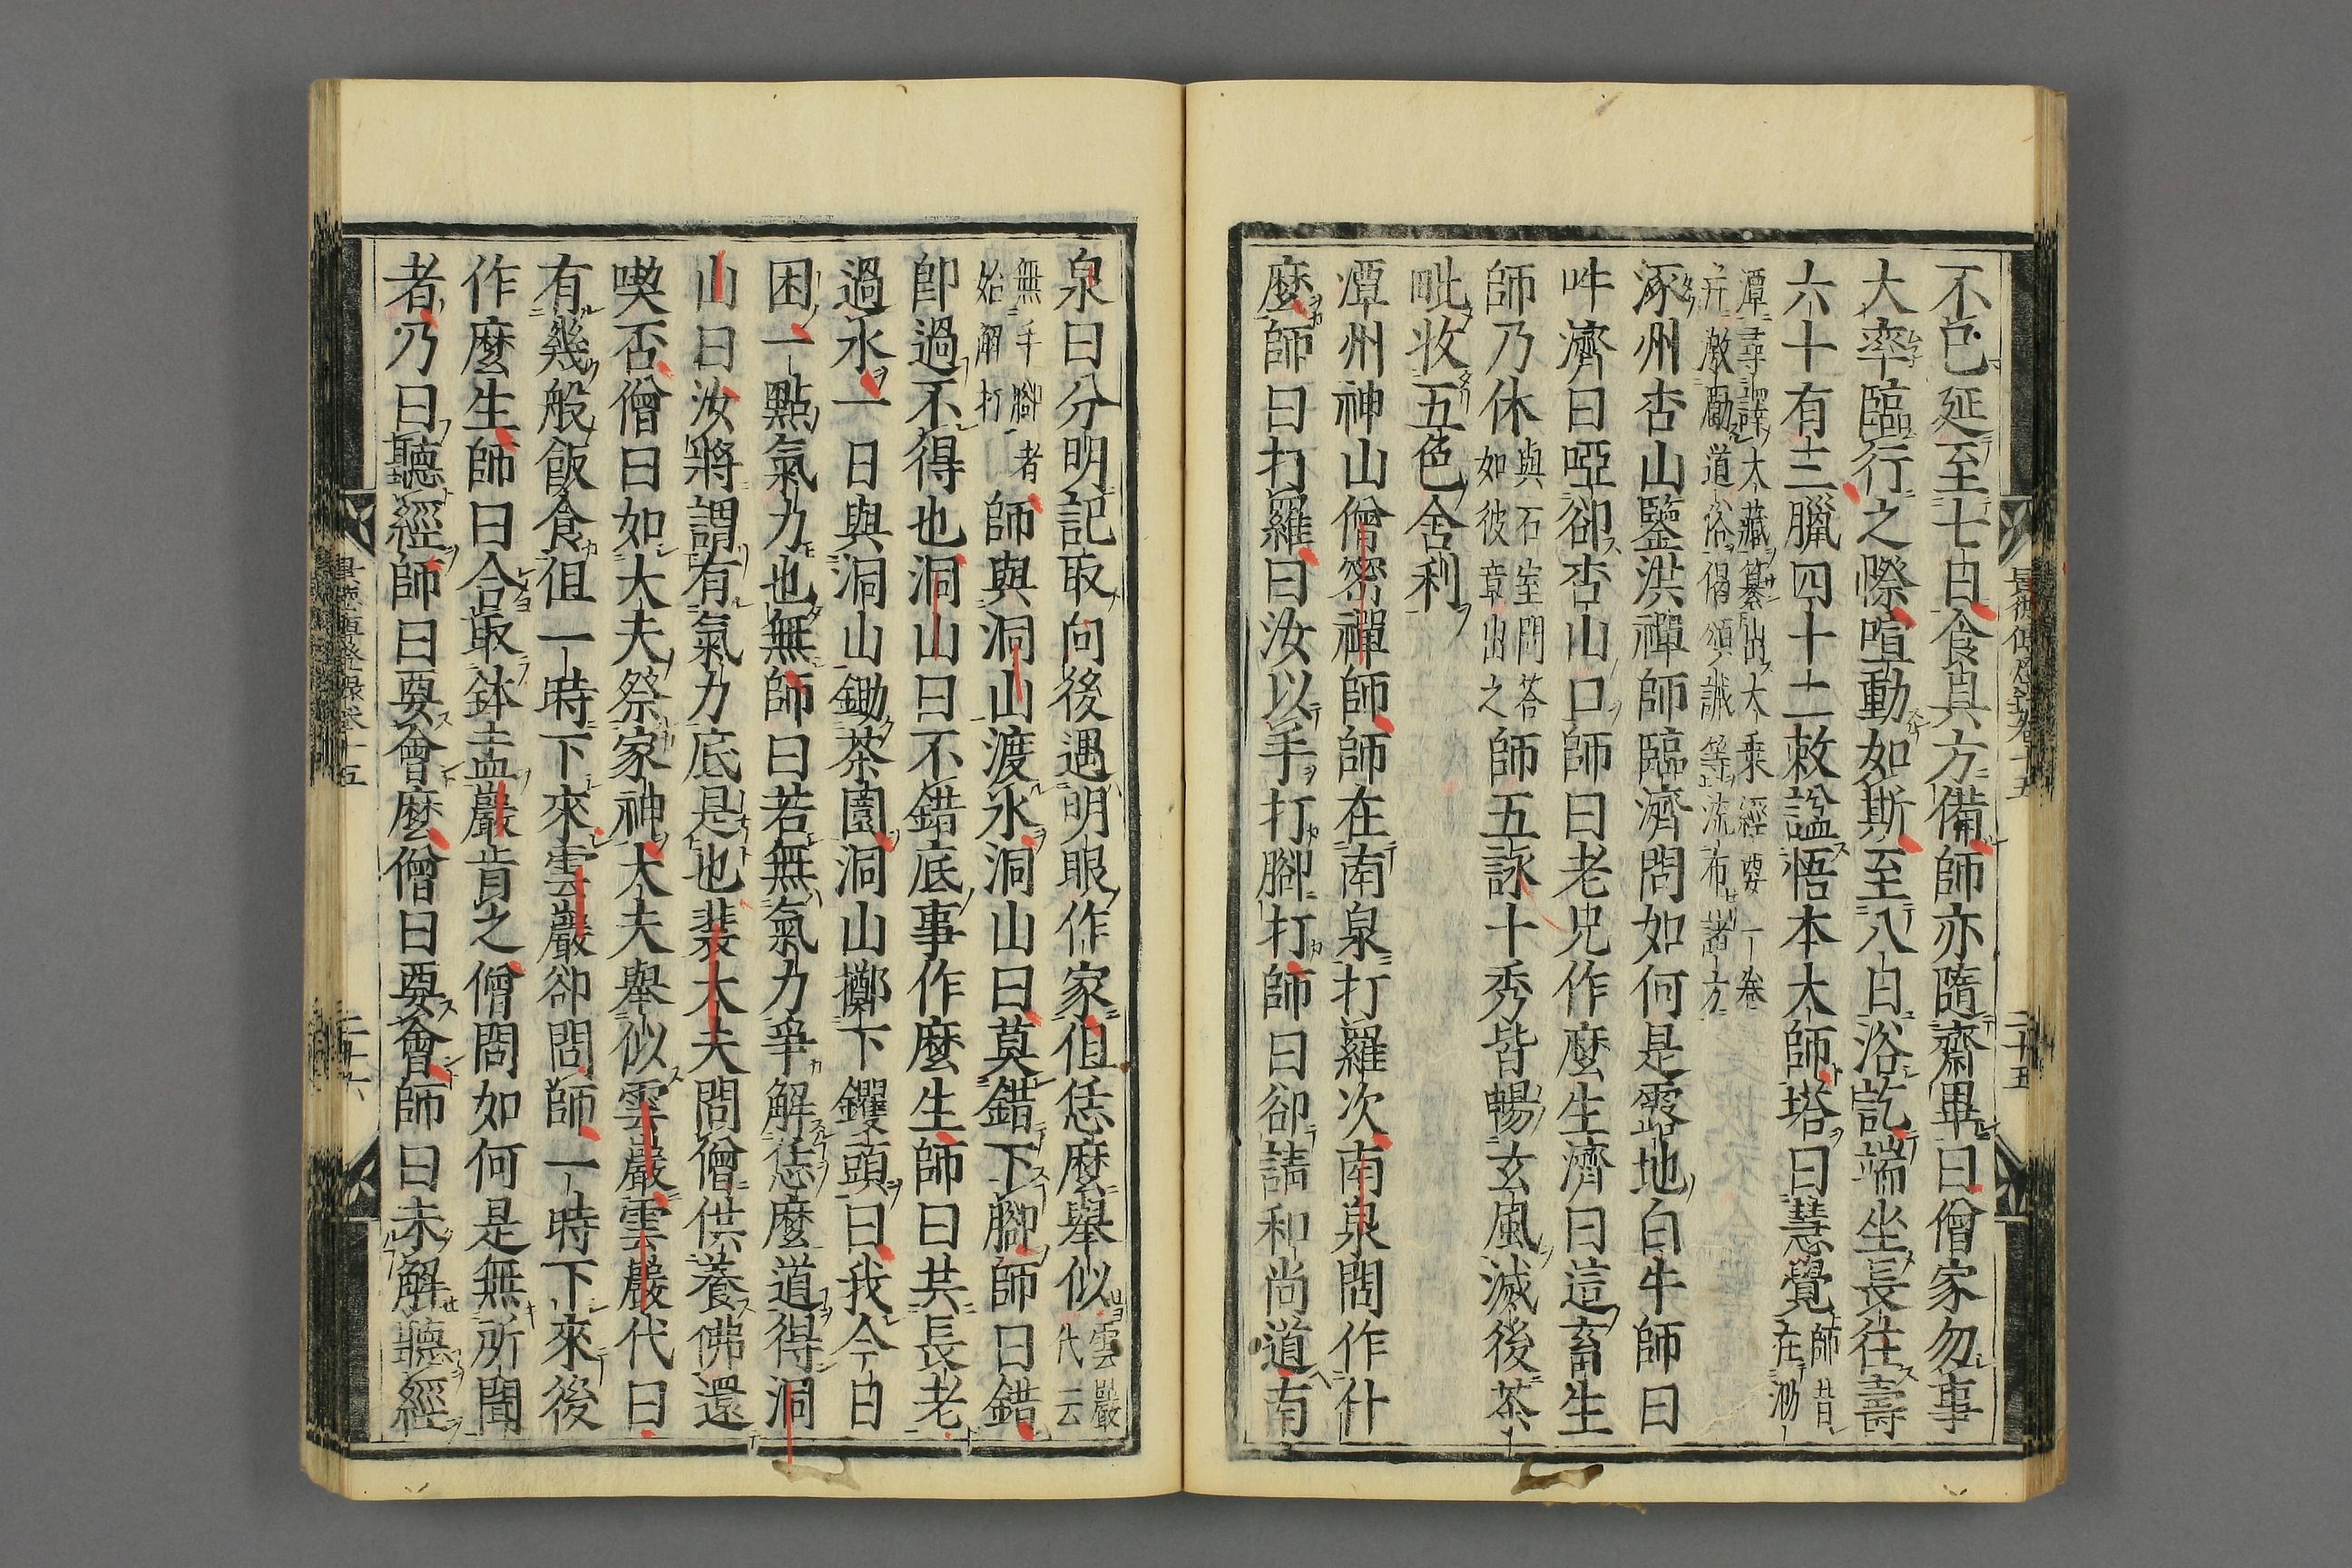 不色延至七日食具方備師亦隨齋畢曰僧家勿事
大率臨行之際喧動如斯至八日浴訖端坐長往壽
六十有三臘四十二敕諡悟本大師塔曰慧覺師昔在泐
潭尋譯大藏纂出大乘經要一卷
并激勵道俗偈頌誡等流布諸方
涿州杏山鑒洪禪師臨濟問如何是露地白牛師曰
吽濟曰啞卻杏山口師曰老兄作麼生濟曰這畜生
師乃休與石室問答如彼章出之師五詠十秀皆暢玄風滅後茶
毗收五色舍利
潭州神山僧密禪師師在南泉打羅次南泉問作什
麼師曰打羅曰汝以手打腳打師曰卻請和尚道南
景德傳燈錄卷十五
二十五
泉曰分明記取向後遇明眼作家但恁麼舉似雲巖代云
無手腳者始解打師與洞山渡水洞山曰莫錯下腳師曰錯
卽過不得也洞山曰不錯底事作麼生師曰共長老
過水一日與洞山鋤茶園洞山擲下钁頭曰我今日
困一點氣力也無師曰若無氣力爭解恁麼道得洞
山曰汝將謂有氣力底是也裴大夫問僧供養佛還
喫否僧曰如大夫祭家神大夫舉似雲巖雲巖代曰
有幾般飯食徂一時下來雲巖卻問師一時下來後
作麼生師曰合取鉢盂巖肯之僧問如何是無所聞
者乃曰聽經師曰要會麼僧曰要會師曰未解聽經
景德傳燈錄卷十五
二十六